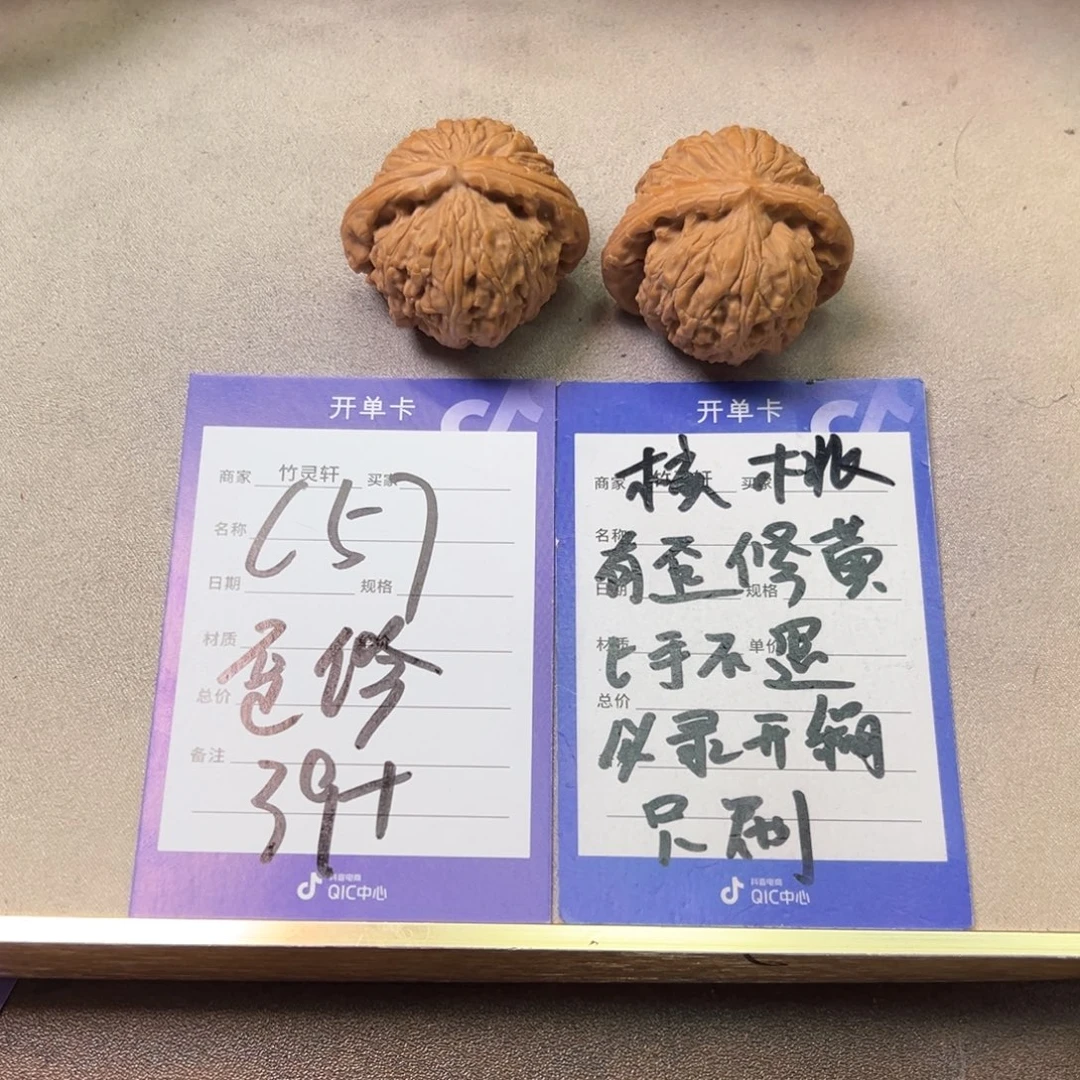 开单卡
商家 竹灵轩 买家
名称 (5)
日期 规格
材质 单价
包修
总价
备注
39+
抖音电商
QIC中心
开单卡
商家 竹灵轩 买家
核桃
名称
有歪修黄
日期 规格
材质 单价
上手不退
总价
必录开箱
尺刷
抖音电商
QIC中心